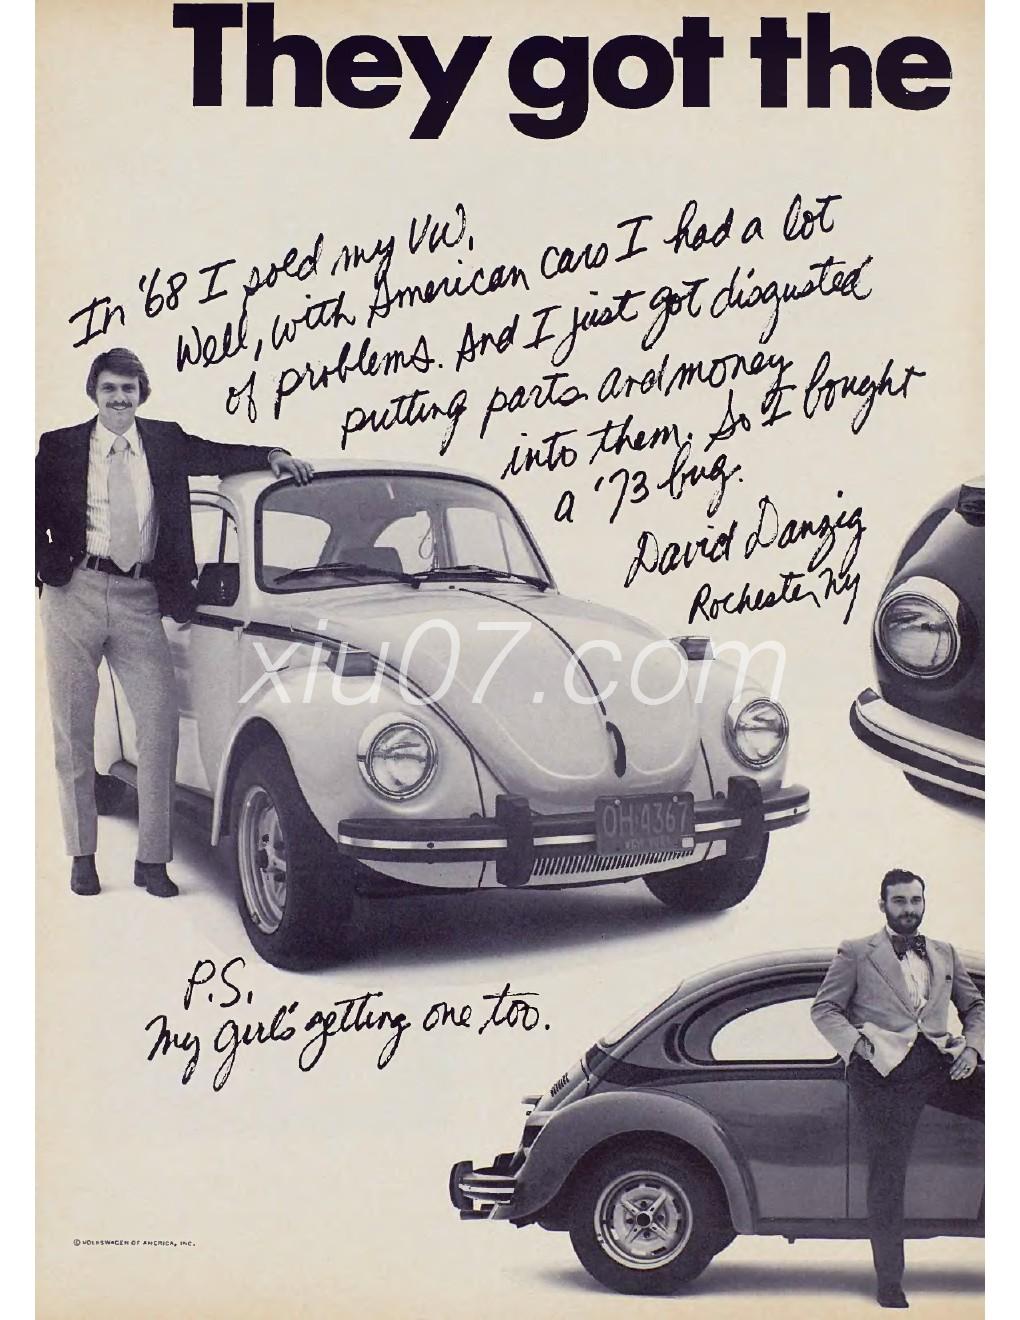 They got the
In '68 I sold my VW.
Well, with American cars I had a lot
of problems. And I just got disgusted
putting parts and money
into them. So I bought
a '73 bug.
David Danzig
Rochester, NY
xiu07.com
OH·4367
P.S.
My girl's getting one too.
© VOLKSWAGEN OF AMERICA, INC.